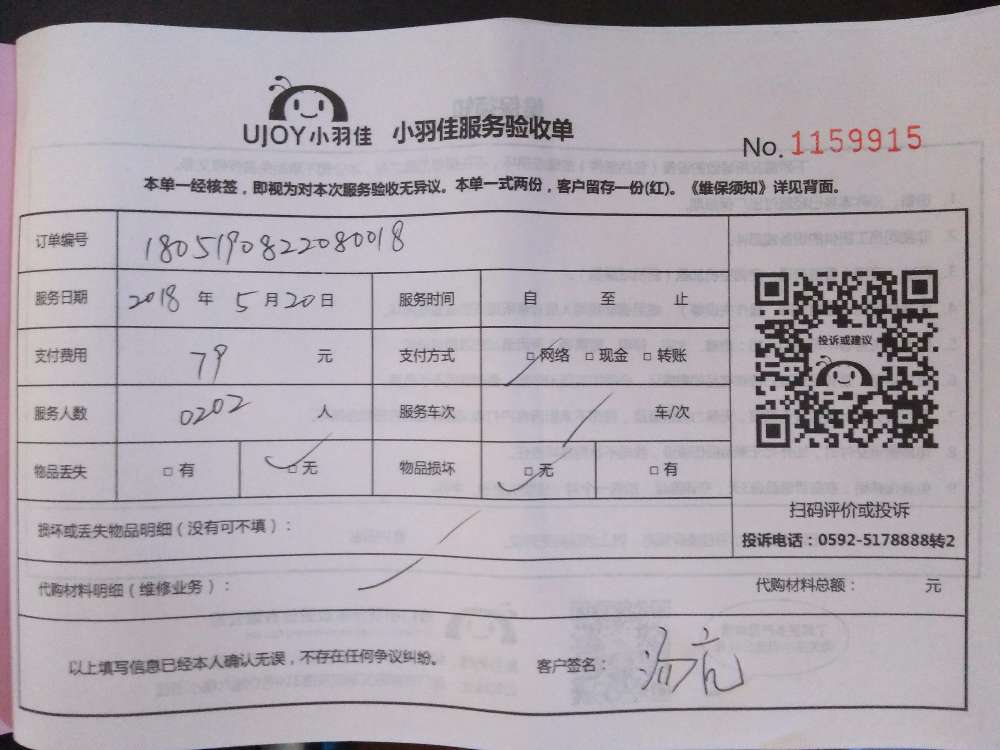 UJOY小羽佳 小羽佳服务验收单
No. 1159915
本单一经核签，即视为对本次服务验收无异议。本单一式两份，客户留存一份(红)。《维保须知》详见背面。
订单编号 1805190822080018
服务日期 2018 年 5 月 20 日 服务时间 自 至 止
支付费用 79 元 支付方式 □ 网络 □ 现金 □ 转账
投诉或建议
服务人数 0202 人 服务车次 / 车/次
物品丢失 □ 有 □ 无 物品损坏 □ 无 □ 有
扫码评价或投诉
损坏或丢失物品明细（没有可不填）：
投诉电话：0592-5178888转2
代购材料明细（维修业务）： 代购材料总额： 元
以上填写信息已经本人确认无误，不存在任何争议纠纷。 客户签名： 汤亮